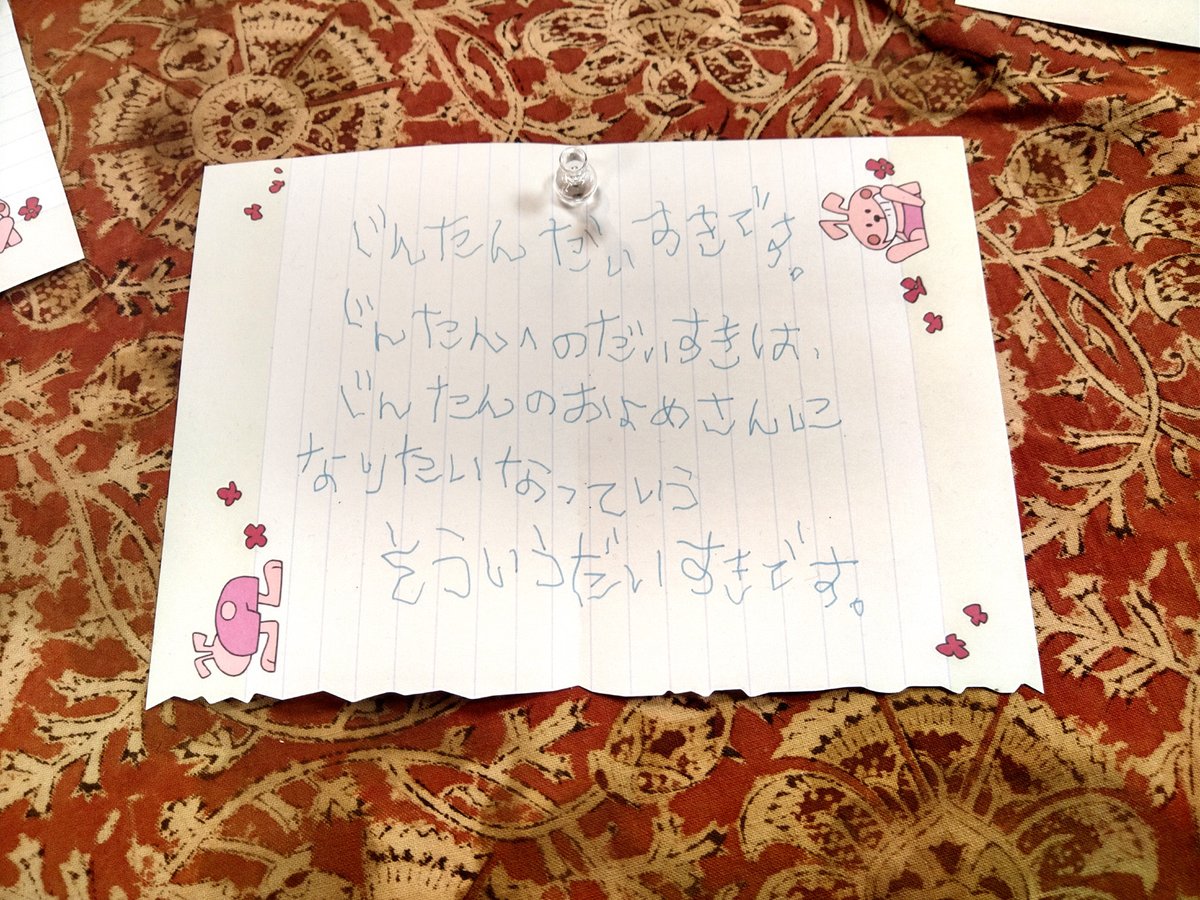 じんたんだいすきです。
じんたんへのだいすきは、
じんたんのおよめさんに
なりたいなっていう
そういうだいすきです。